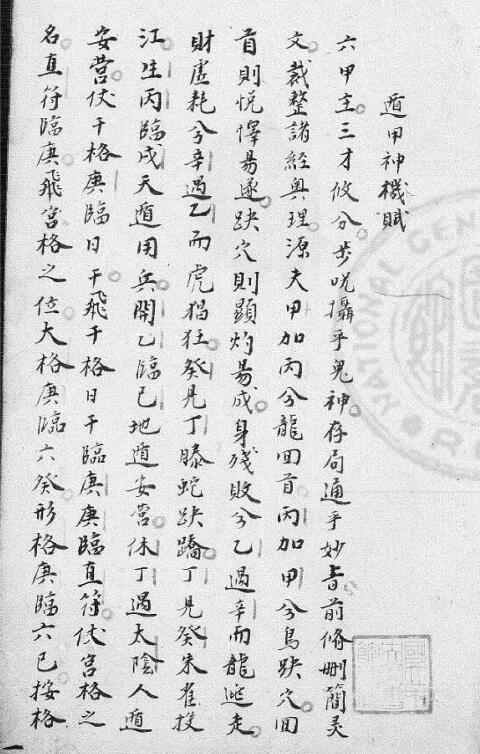 遁甲神機賦
六甲主三才攸分步呪攝乎鬼神存局通乎妙旨前脩刪簡灵
文裁整諸經奥理源夫甲加丙兮龍囬首丙加甲兮鳥趺穴囬
首則悦懌易遂趺穴則顯灼易成身殘敗兮乙遇辛而龍逃走
財虛耗兮辛遇乙而虎猖狂癸見丁滕蛇趺蹻丁見癸朱雀投
江生丙臨戍天遁用兵開乙臨己地遁安营休丁遇太陰人遁
安营伏干格庚臨日干飛干格日干臨庚庚臨直符伏宫格之
名直符臨庚飛宫格之位大格庚臨六癸形格庚臨六己按格
NATIONAL CEN